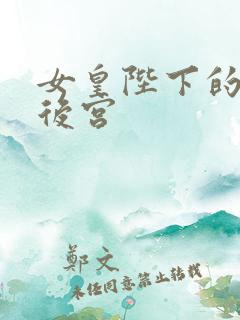 女皇陛下的
後宮
鄭文
未经同意禁止转载